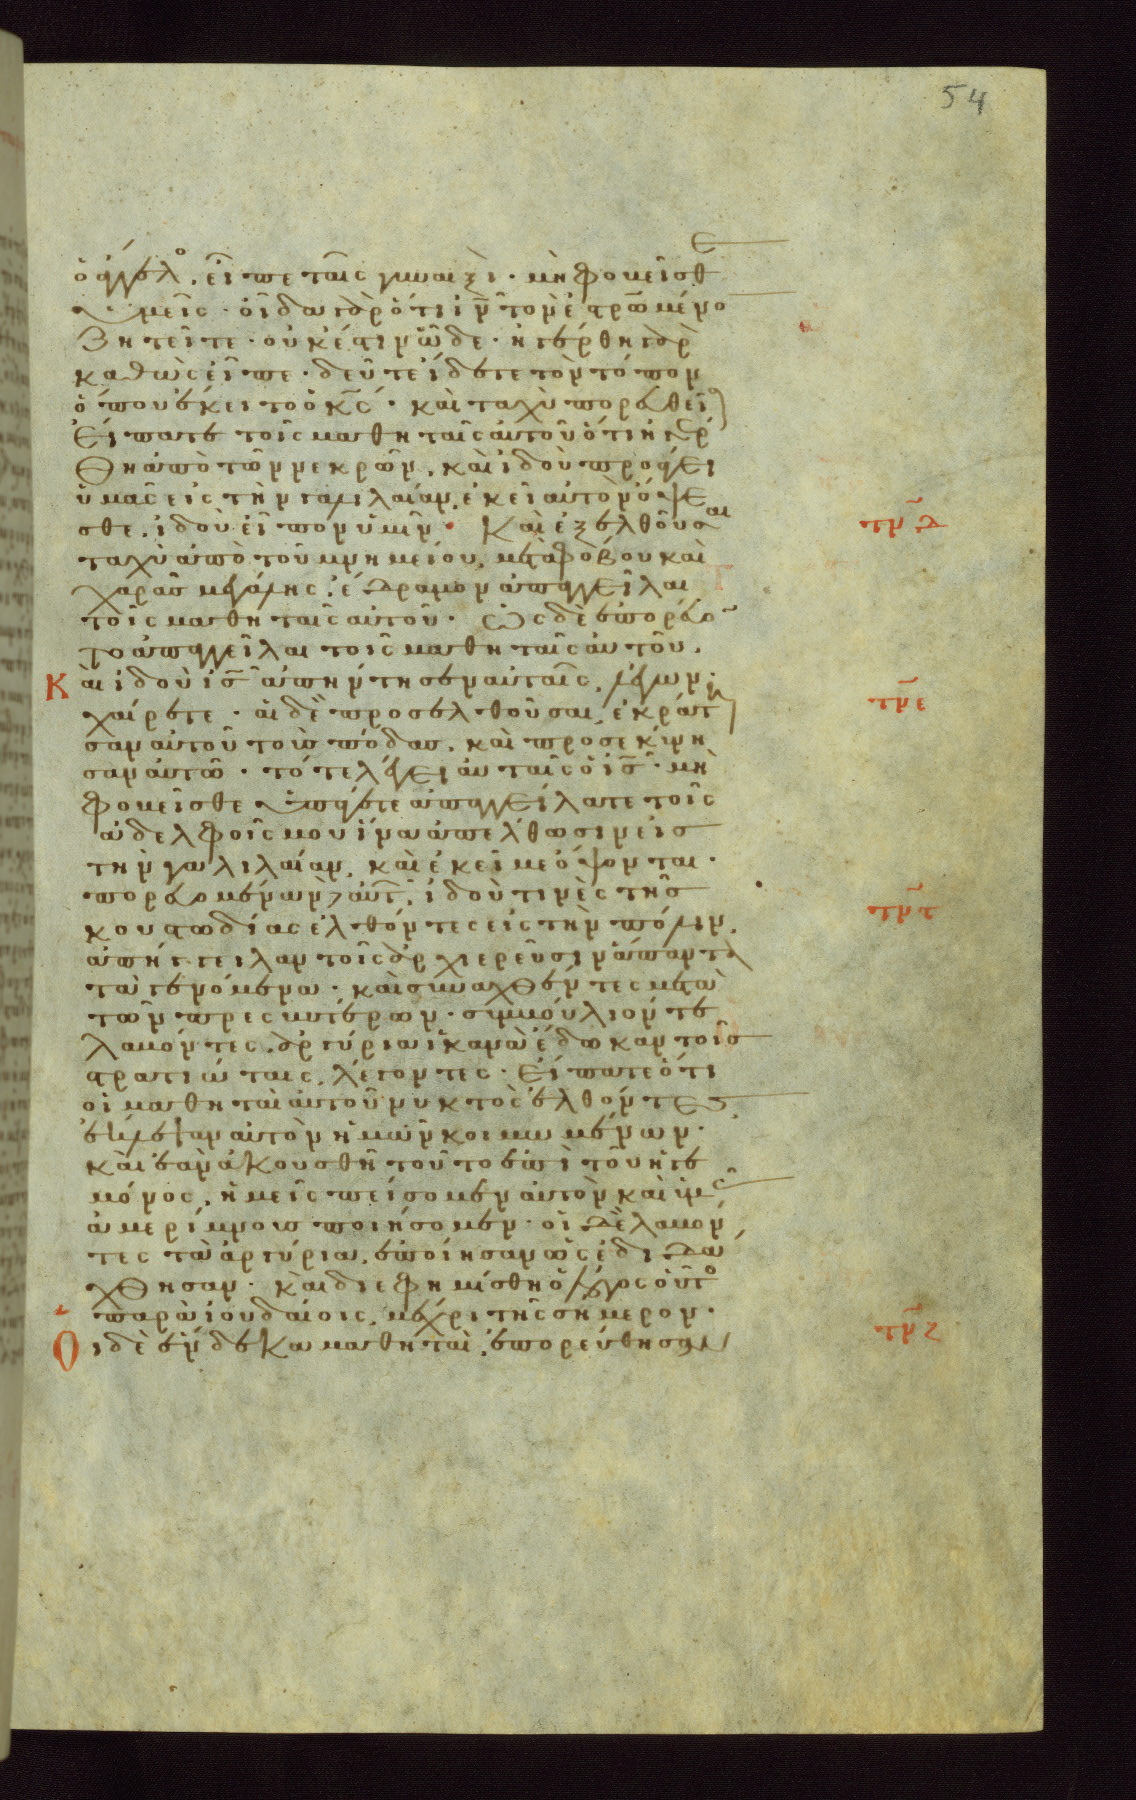 54
ὁ ἄγγελο. εἶπε ταῖς γυναιξὶ· μὴ φοβεῖσθε
ὑμεῖς· οἶδα γὰρ ὅτι ἰν τὸν ἐσταυρωμένο
ζητεῖτε· οὐκ ἔστιν ὧδε· ἠγέρθη γὰρ
καθὼς εἶπε· δεῦτε ἴδετε τὸν τόπον
ὅπου ἔκειτο ὁ κς· καὶ ταχὺ πορευθεῖσ
εἴπατε τοῖς μαθηταῖς αὐτοῦ ὅτι ἠγέρ
θη ἀπὸ τῶν νεκρῶν. καὶ ἰδοὺ προάγει
ὑμᾶς εἰς τὴν γαλιλαίαν. ἐκεῖ αὐτὸν ὄψε
σθε. ἰδοὺ εἶπον ὑμῖν· Καὶ ἐξελθοῦσαι
τμδ
ταχὺ ἀπὸ τοῦ μνημείου. μετὰ φόβου καὶ
χαρᾶς μεγάλης. ἔδραμον ἀπαγγεῖλαι
τοῖς μαθηταῖς αὐτοῦ· Ὡς δὲ ἐπορεύον
το ἀπαγγεῖλαι τοῖς μαθηταῖς αὐτοῦ.
Καὶ ἰδοὺ ις ἀπήντησεν αὐταῖς, λέγων·
τμε
χαίρετε· αἱ δὲ προσελθοῦσαι, ἐκράτη
σαν αὐτοῦ τοὺς πόδας. καὶ προσεκύνη
σαν αὐτῶ· τότε λέγει αὐταῖς ὁ ις· μὴ
φοβεῖσθε ὑπάγετε ἀπαγγείλατε τοῖς
ἀδελφοῖς μου ἵνα ἀπέλθωσιν εἰς
τὴν γαλιλαίαν. καὶ ἐκεῖ με ὄψονται·
πορευομένων δὲ αὐτ. ἰδού τινὲς τῆς
τμς
κουστωδίας ἐλθόντες εἰς τὴν πόλιν.
ἀπήγγειλαν τοῖς ἀρχιερεῦσιν ἅπαντα
τὰ γενόμενα· καὶ συναχθέντες μετὰ
τῶν πρεσβυτέρων· συμβούλιόν τε
λαβόντες. ἀργύρια ἱκανὰ ἔδωκαν τοῖς
στρατιώταις. λέγοντες· Εἴπατε ὅτι
οἱ μαθηταὶ αὐτοῦ νυκτὸς ἐλθόντες
ἔκλεψαν αὐτὸν ἡμῶν κοιμωμένων·
καὶ ἐὰν ἀκουσθῆ τοῦτο ἐπὶ τοῦ ἡγε
μόνος. ἡμεῖς πείσομεν αὐτὸν καὶ ὑμᾶς
ἀμερίμνους ποιήσομεν· οἱ δὲ λαβόν
τες τὰ ἀργύρια. ἐποίησαν ὡς ἐδιδά
χθησαν· καὶ διεφημίσθη ὁ λόγος οὗτο
παρὰ ἰουδαίοις. μέχρι τῆς σήμερον·
Οἱ δὲ ἕνδεκα μαθηταὶ. ἐπορεύθησαν
τμζ